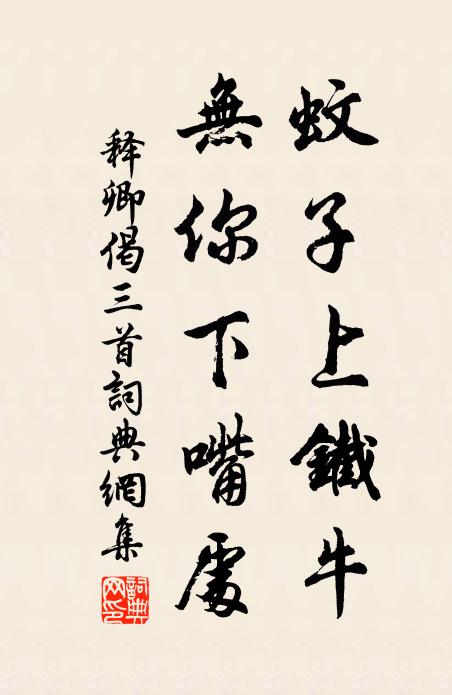 蚊子上鐵牛
無你下嘴處
释卿偈三首詞典網集
詞典网印